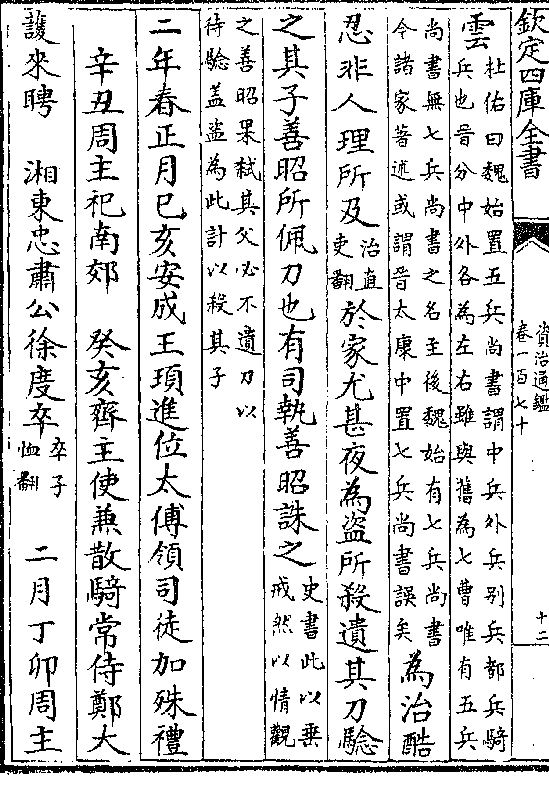 欽定四庫全書
資治通鑑
卷一百七十
十二
雲
杜佑曰魏始置五兵尚書謂中兵外兵别兵都兵騎
兵也晉分中外各為左右雖與舊為七曹唯有五兵
尚書無七兵尚書之名至後魏始有七兵尚書
今諸家著述或謂晉太康中置七兵尚書誤矣
為治酷
忍非人理所及
治直
吏翻
於家尤甚夜為盜所殺遺其刀驗
之其子善昭所佩刀也有司執善昭誅之
史書此以垂
戒然以情觀
之善昭果弑其父必不遺刀以
待驗盖盜為此計以殺其子
二年春正月己亥安成王頊進位太傅領司徒加殊禮
辛丑周主祀南郊 癸亥齊主使兼散騎常侍鄭大
護來聘 湘東忠肅公徐度卒
卒子
恤翻
二月丁卯周主